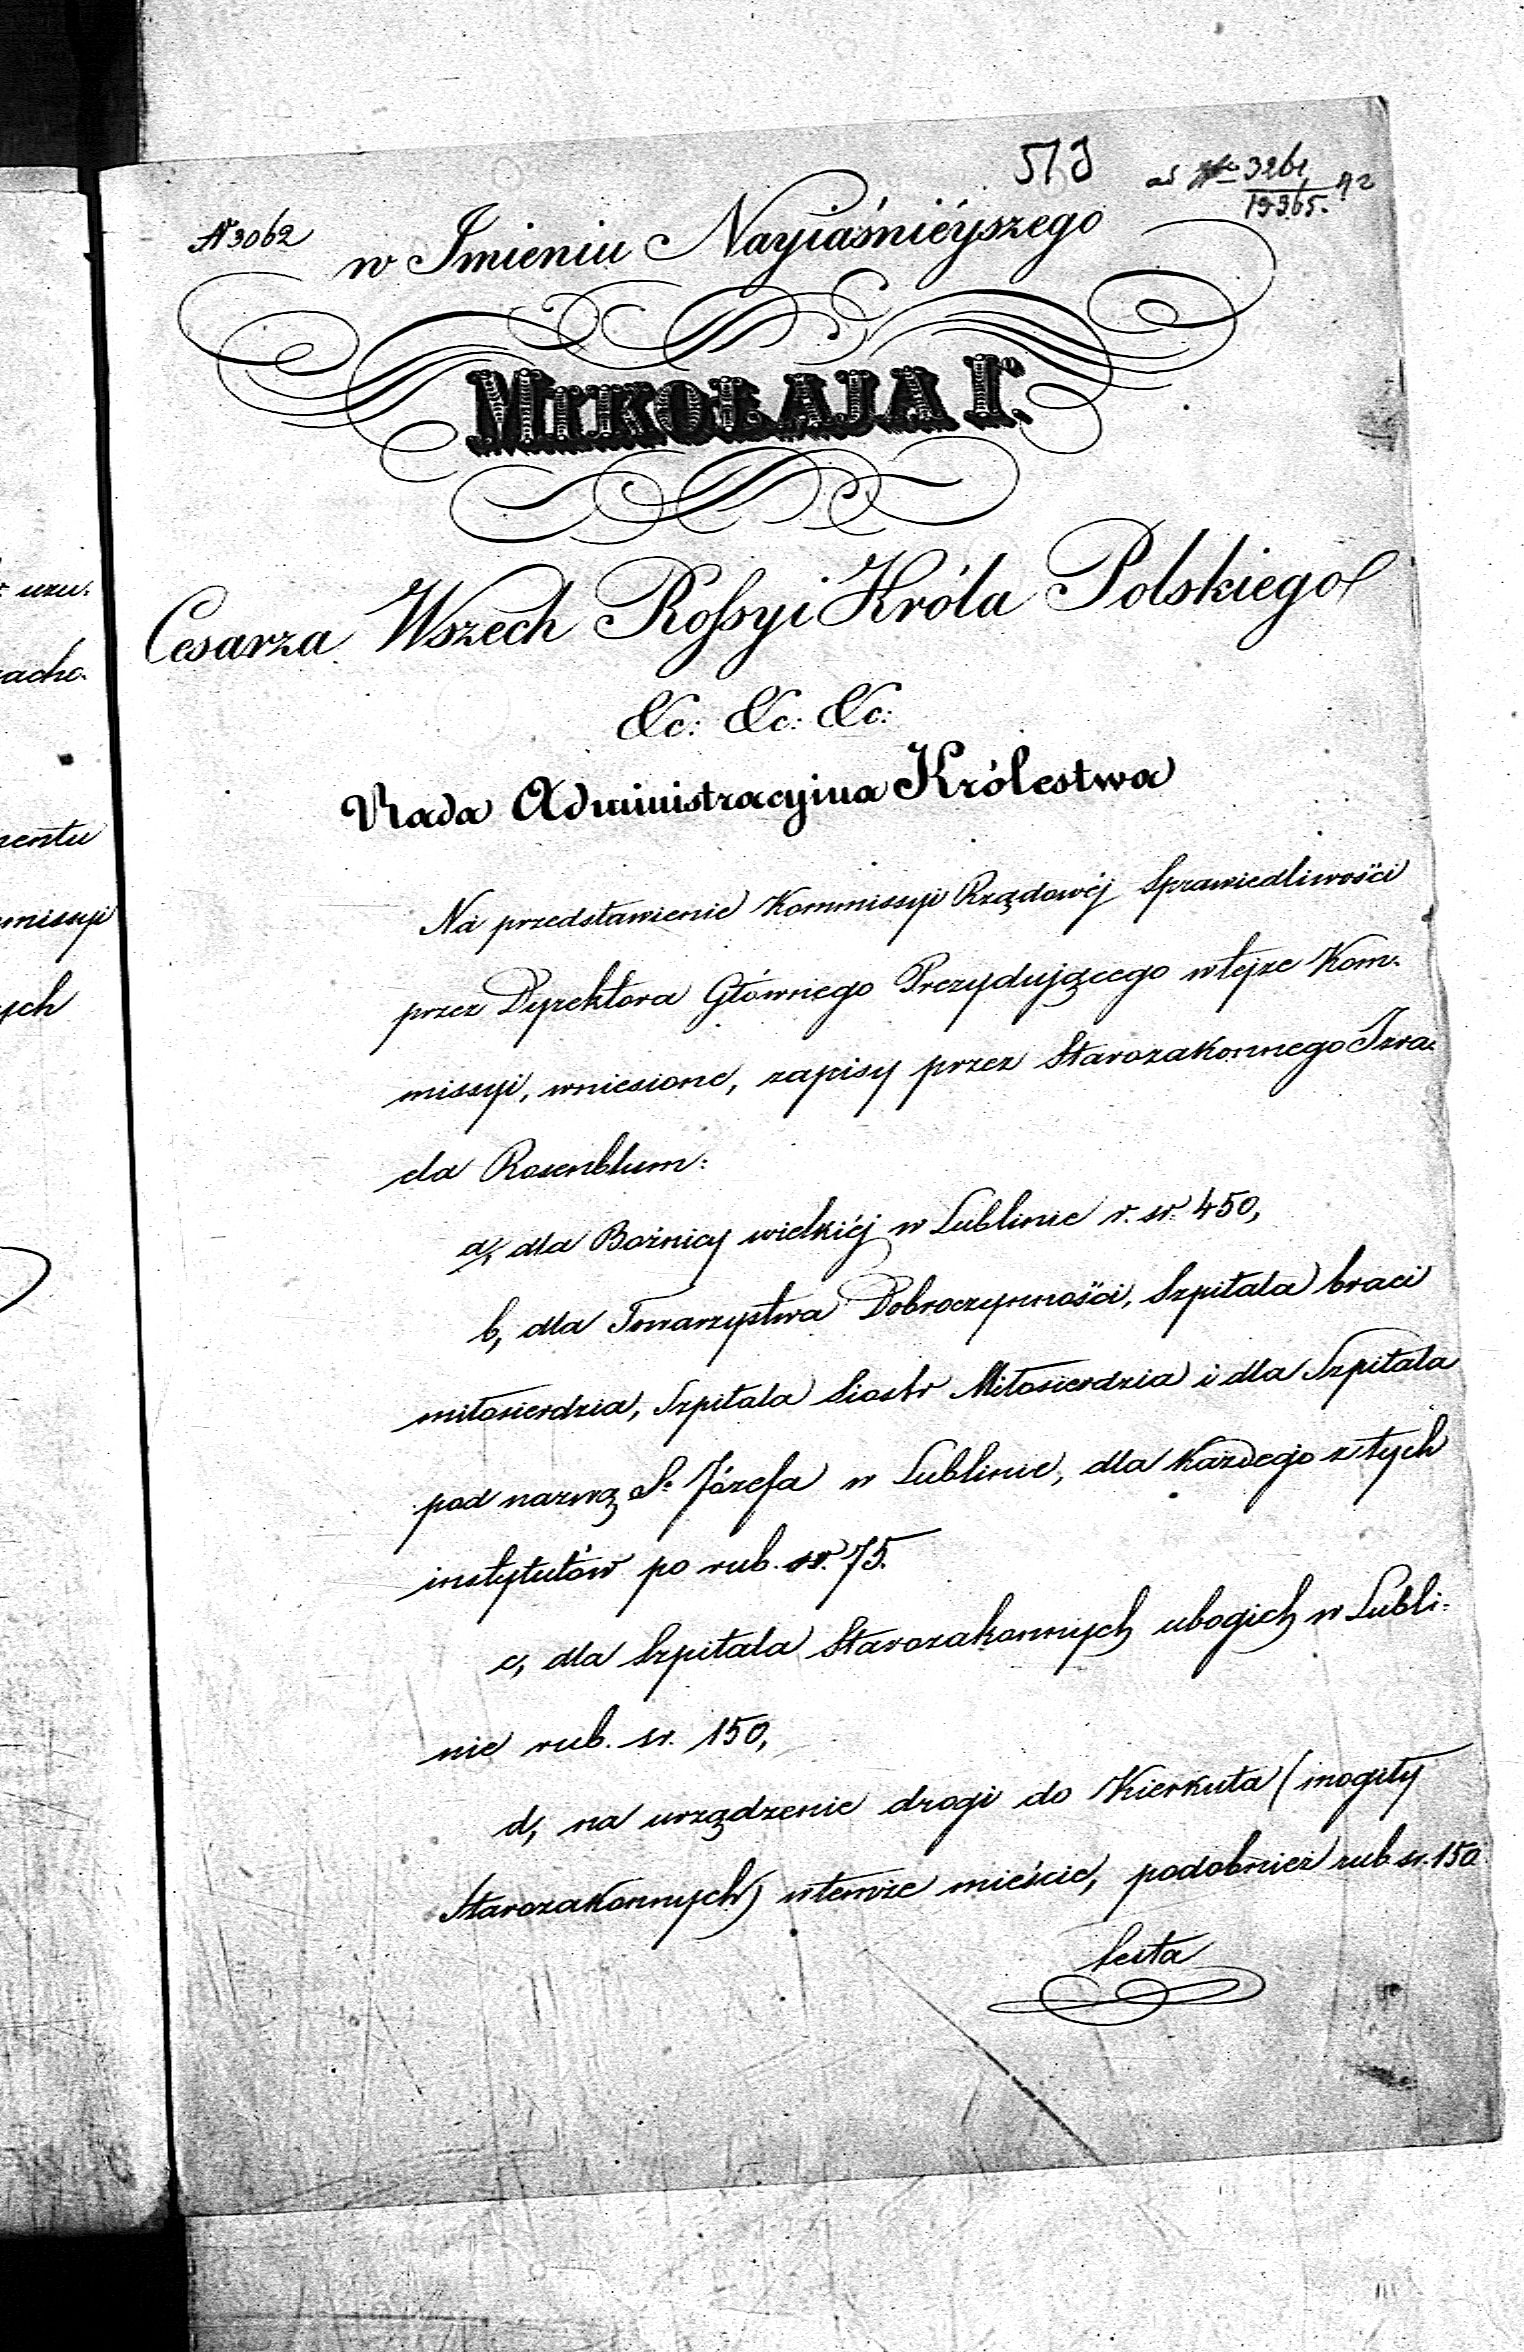 513
ad No 3261
19365.
N 3062
w Imieniu Nayiaśnieyszego
MIKOŁAJA Igo.
Cesarza Wszech Rossyi Króla Polskiego
&c: &c: &c:
Rada Administracyina Królestwa
Na przedstawienie Kommissyi Rządowéj Sprawiedliwości
przez Dyrektora Głównego Prezydującego wtejze Kom-
missyi, wniesione, zapisy przez Starozakonnego Izra-
ela Rosenblum:
a, dla Bożnicy wielkiéj w Lublinie r. sr. 450,
b, dla Towarzystwa Dobroczynności, Szpitala braci
miłosierdzia, Szpitala Siostr Miłosierdzia i dla Szpitala
pod nazwą S. Józefa w Lublinie, dla każdego z tych
instytutów po rub. sr. 75.
c, dla Szpitala Starozakonnych ubogich w Lubli-
nie rub. sr. 150,
d, na urządzenie drogi do Kierkuta (mogiły
Starozakonnych) wtemże mieście, podobnież rub. sr. 150
uzu-
acho-
mentu
mmissyi
ych